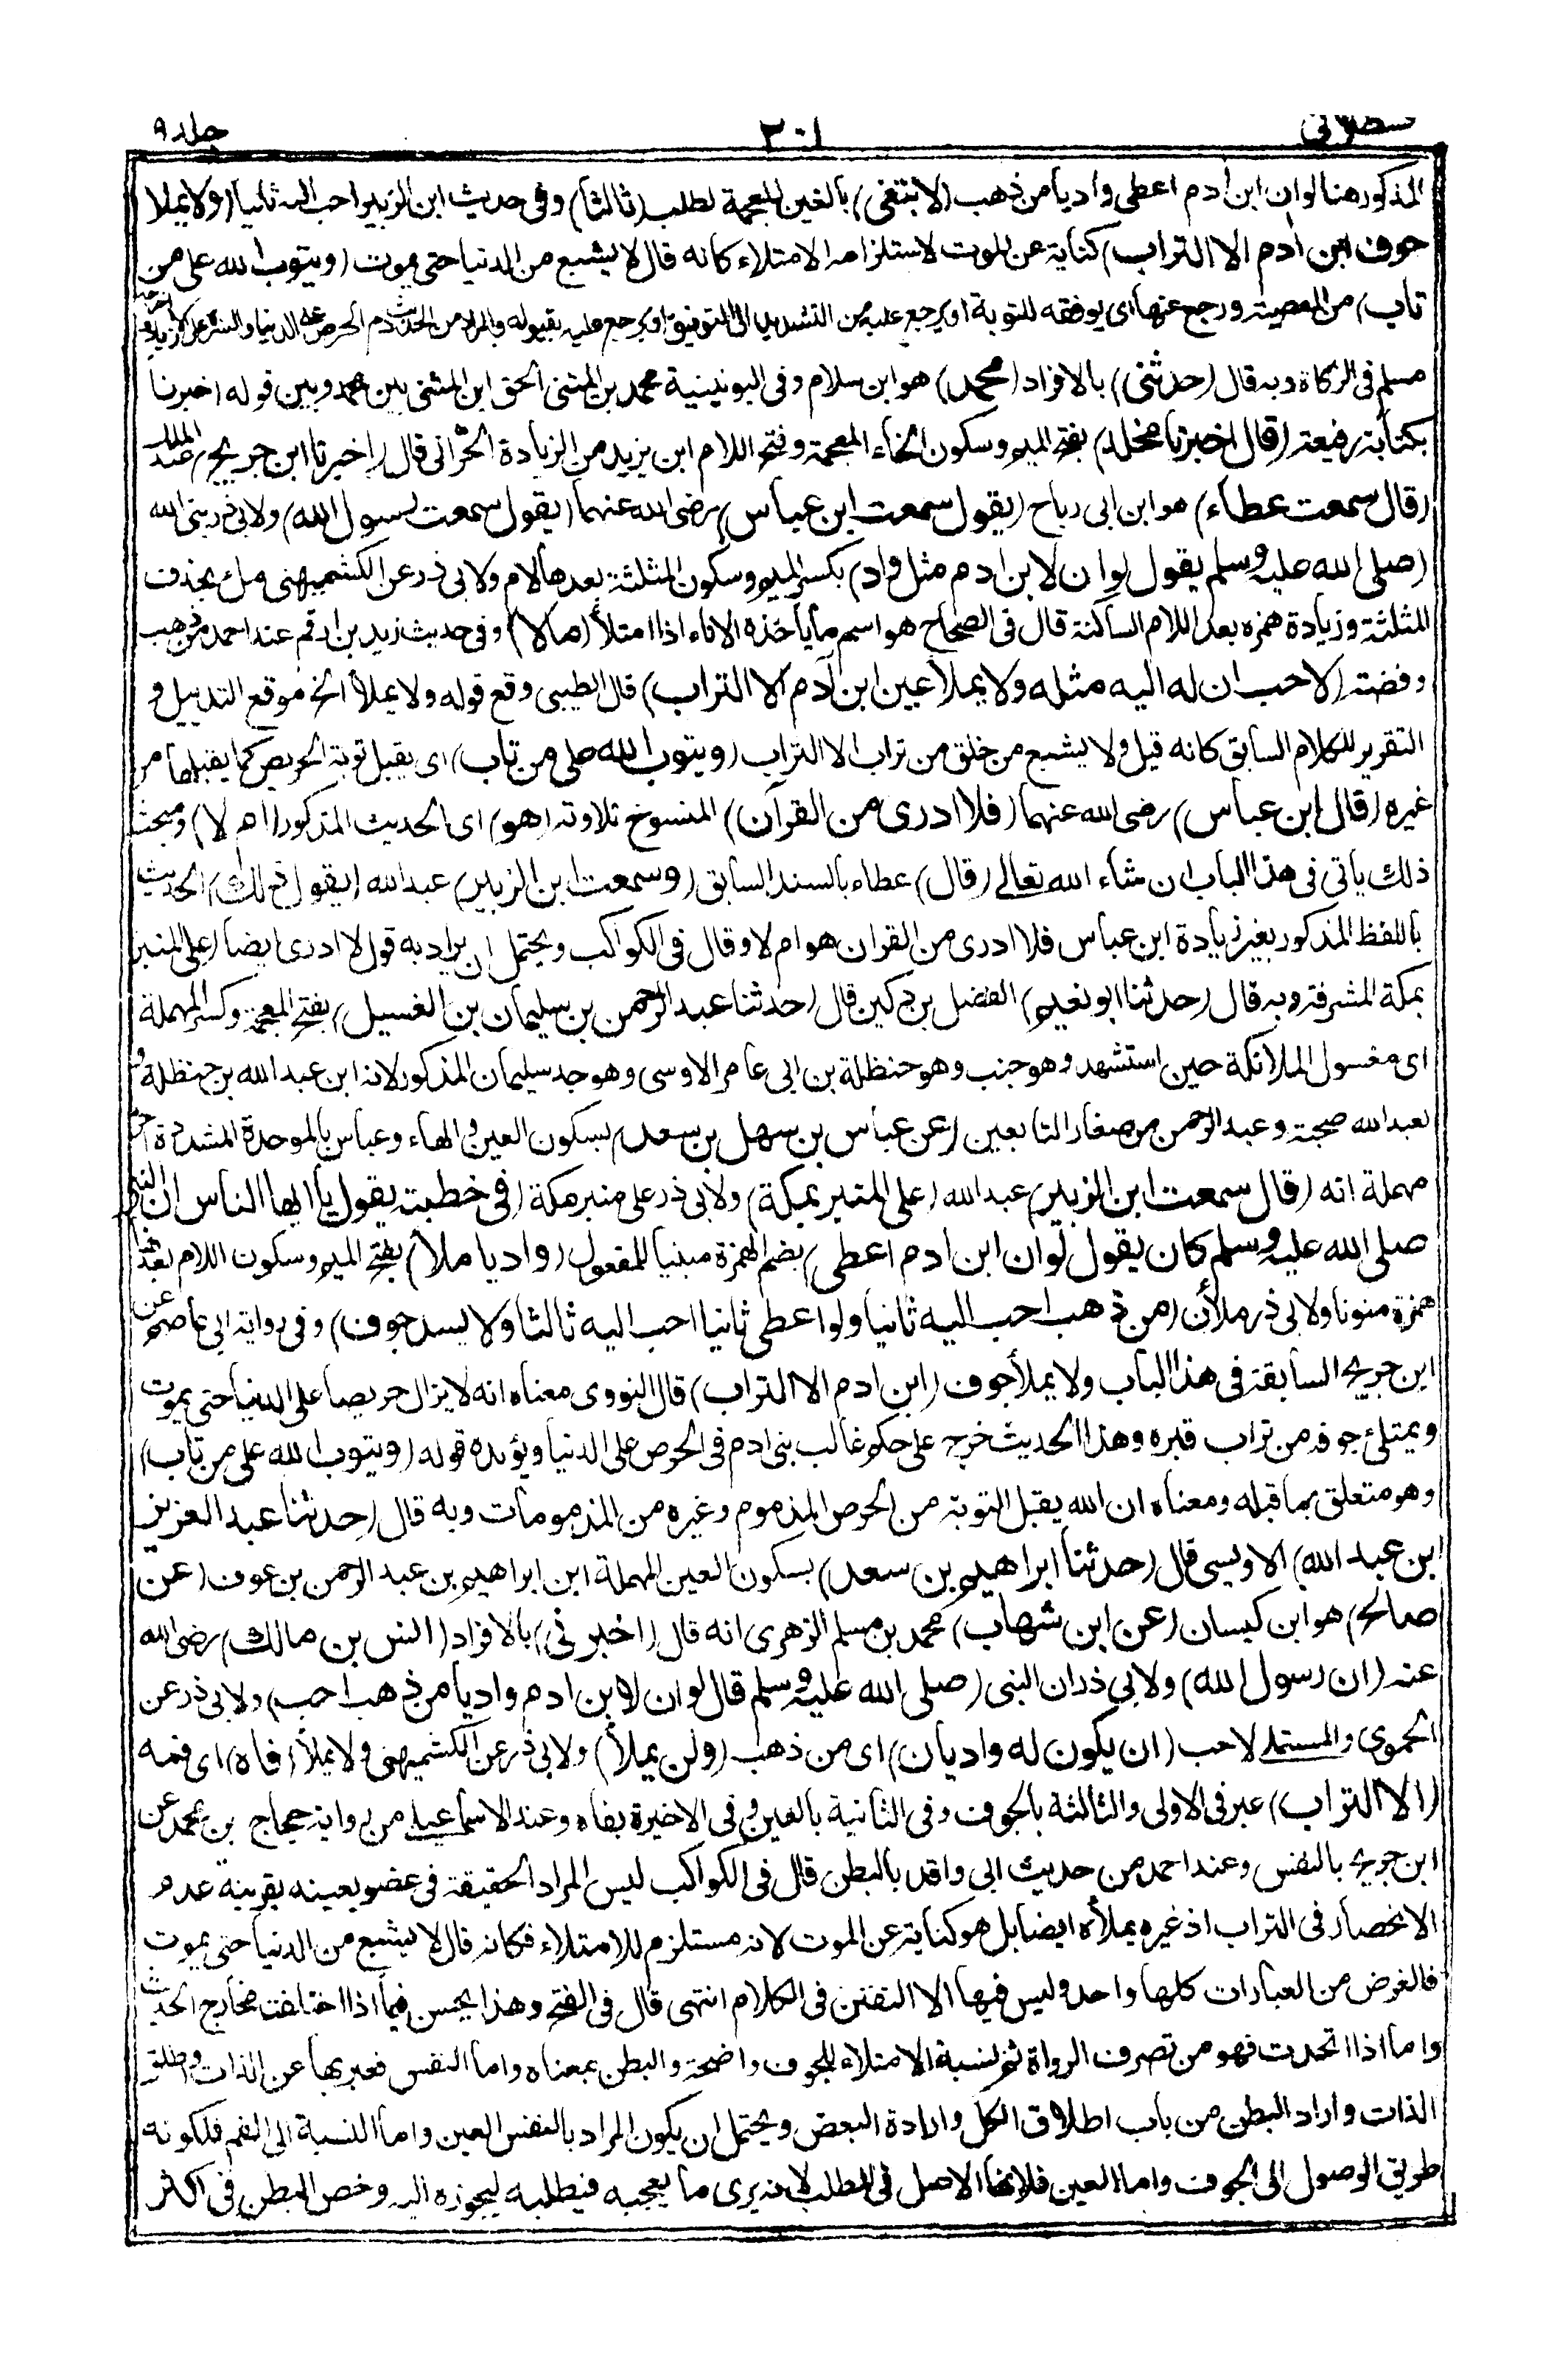 قسطلانى ٣٠١ جلد ٩
المذكور هنا لو ان ابن ادم اعطى واديا من ذهب (لابتغى) بالغين المعجمة لطلب (ثالثا) وفى حديث ابن الزبير احب اليه ثانيا (ولا يملا
جوف ابن ادم الا التراب) كناية عن الموت لاستلزامه الامتلاء كانه قال لا يشبع من الدنيا حتى يموت (ويتوب الله على من
تاب) من المعصية ورجع عنها اى يوفقه للتوبة او يرجع عليه من التشديد الى التوفيق او يرجع عليه بقبوله والمراد من الحديث ذم الحرص على الدنيا والشره على الازدياد اخرجه
مسلم فى الزكاة وبه قال (حدثنى) بالافراد (محمد) هو ابن سلام وفى اليونينية محمد بن المثنى الحق ابن المثنى بين محمد وبين قوله اخبرنا
بكتابة رفيعة (قال اخبرنا مخلد) بفتح الميم وسكون الخاء المعجمة وفتح اللام ابن يزيد من الزيادة الحرّانى قال (اخبرنا ابن جريج) عبد الملك
(قال سمعت عطاء) هو ابن ابى رباح (يقول سمعت ابن عباس) رضى الله عنهما (يقول سمعت رسول الله) ولابى ذر نبى الله
(صلى الله عليه وسلم يقول لو ان لابن ادم مثل واد) بكسر الميم وسكون المثلثة بعدها لام ولابى ذر عن الكشميهنى ملء بحذف
المثلثة وزيادة همزه بعد اللام الساكنة قال فى الصحاح هو اسم ما ياخذه الاناء اذا امتلأ (مالا) وفى حديث زيد بن ارقم عند احمد من ذهب
وفضة (لاحب ان له اليه مثله ولا يملأ عين ابن آدم الا التراب) قال الطيبى وقع قوله ولا يملأ الخ موقع التذييل و
التقرير للكلام السابق كانه قيل ولا يشبع من خلق من تراب الا التراب (ويتوب الله على من تاب) اى يقبل توبة الحريص كما يقبلها من
غيره (قال ابن عباس) رضى الله عنهما (فلا ادرى من القرآن) المنسوخ تلاوته (هو) اى الحديث المذكور (ام لا) ومبحث
ذلك ياتى فى هذا الباب ان شاء الله تعالى (قال) عطاء بالسند السابق (وسمعت ابن الزبير) عبد الله (يقول ذلك) الحديث
باللفظ المذكور بغير زيادة ابن عباس فلا ادرى من القران هو ام لا وقال فى الكواكب ويحتمل ان يراد به قول لا ادرى ايضا (على المنبر
بمكة المشرفة وبه قال (حدثنا ابو نعيم) الفضل بن دكين قال (حدثنا عبد الرحمن بن سليمان بن الغسيل) بفتح المعجمة وكسر المهملة
اى مغسول الملائكة حين استشهد وهو جنب وهو حنظلة بن ابى عامر الاوسى وهو جد سليمان المذكور لانه ابن عبد الله بن حنظلة و
لعبد الله صحبة وعبد الرحمن من صغار التابعين (عن عباس بن سهل بن سعد) بسكون العين والهاء وعباس بالموحدة المشددة اخره
مهملة انه (قال سمعت ابن الزبير) عبد الله (على المنبر بمكة) ولابى ذر على منبر مكة (فى خطبته يقول يا ايها الناس ان النبى
صلى الله عليه وسلم كان يقول لو ان ابن ادم اعطى) بضم الهمزة مبنيا للمفعول (واديا ملأ) بفتح الميم وسكون اللام بعدها
همزة منونا ولابى ذر ملأن (من ذهب احب اليه ثانيا ولو اعطى ثانيا احب اليه ثالثا ولا يسد جوف) وفى رواية ابى عاصم عن
ابن جريج السابقة فى هذا الباب ولا يملأ جوف (ابن ادم الا التراب) قال النووى معناه انه لا يزال حريصا على الدنيا حتى يموت
ويمتلئ جوفه من تراب قبره وهذا الحديث خرج على حكم غالب بنى ادم فى الحرص على الدنيا ويؤيده قوله (ويتوب الله على من تاب)
وهو متعلق بما قبله ومعناه ان الله يقبل التوبة من الحرص المذموم وغيره من المذمومات وبه قال (حدثنا عبد العزيز
ابن عبد الله) الاويسى قال (حدثنا ابراهيم بن سعد) بسكون العين المهملة ابن ابراهيم بن عبد الرحمن بن عوف (عن
صالح) هو ابن كيسان (عن ابن شهاب) محمد بن مسلم الزهرى انه قال (اخبرنى) بالافراد (انس بن مالك) رضى الله
عنه (ان رسول الله) ولابى ذر ان النبى (صلى الله عليه وسلم قال لو ان لابن ادم واديا من ذهب احب) ولابى ذر عن
الحموى والمستملى لاحب (ان يكون له واديان) اى من ذهب (ولن يملأ) ولابى ذر عن الكشميهنى ولا يملأ (فاه) اى فمه
(الا التراب) عبر فى الاولى والثالثة بالجوف وفى الثانية بالعين وفى الاخيرة بفاه وعند الاسماعيلى من رواية حجاج بن محمد عن
ابن جريج بالنفس وعند احمد من حديث ابى واقد بالبطن قال فى الكواكب ليس المراد الحقيقة فى عضو بعينه بقرينة عدم
الانحصار فى التراب اذ غيره يملأه ايضا بل هو كناية عن الموت لانه مستلزم للامتلاء فكانه قال لا يشبع من الدنيا حتى يموت
فالغرض من العبارات كلها واحد وليس فيها الا التفنن فى الكلام انتهى قال فى الفتح وهذا يحسن فيما اذا اختلفت مخارج الحديث
واما اذا اتحدت فهو من تصرف الرواة ثم نسبة الامتلاء للجوف واضحة والبطن بمعناه واما النفس فعبر بها عن الذات واطلق
الذات واراد البطن من باب اطلاق الكل وارادة البعض ويحتمل ان يكون المراد بالنفس العين واما النسبة الى الفم فلكونه
طريق الوصول الى الجوف واما العين فلانها الاصل فى الطلب لانه يرى ما يعجبه فيطلبه ليحوزه اليه وخص البطن فى اكثر